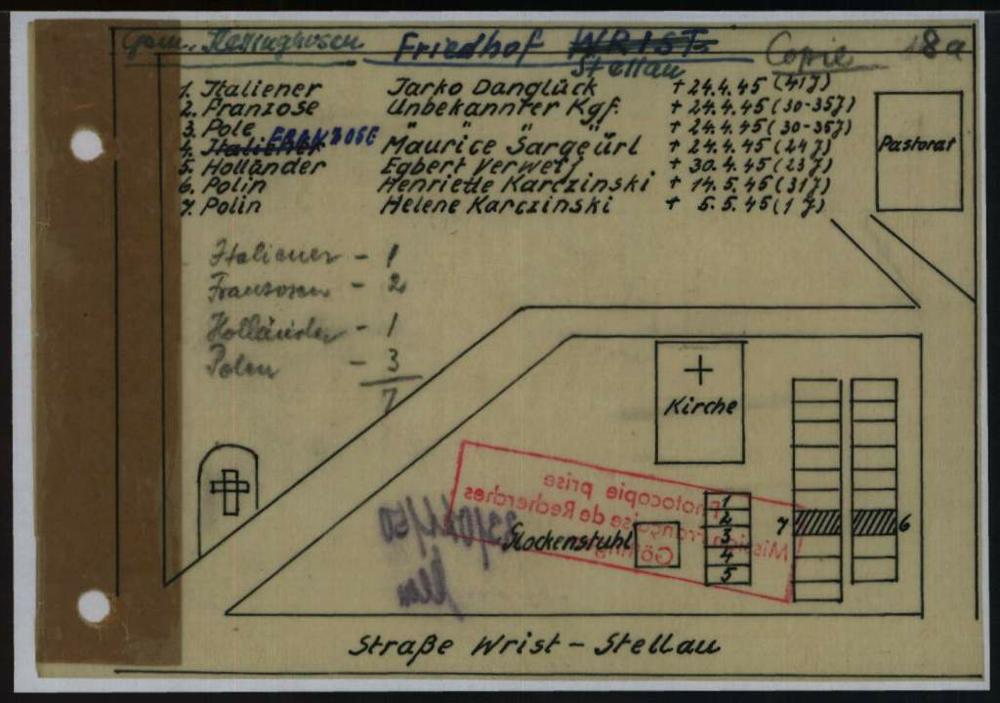 Gem. Kellinghusen Friedhof WRIST Copie 18a
Stellau
1. Italiener Jarko Danglück + 24.4.45 (41J)
2. Franzose Unbekannter Kgf. + 24.4.45 (30-35J)
3. Pole " " + 24.4.45 (30-35J)
4. Italiener FRANZOSE Maurice Sargeürl + 24.4.45 (24J)
5. Holländer Egbert Verweij + 30.4.45 (23J)
6. Polin Henriette Karczinski + 14.5.45 (31J)
7. Polin Helene Karczinski + 5.5.45 (1J)
Pastorat
Italiener - 1
Franzosen - 2
Holländer - 1
Polen - 3
7
Kirche
Photocopie prise
Mission Française de Recherches
Götting
Glockenstuhl
1
2
3
4
5
7
6
Straße Wrist - Stellau